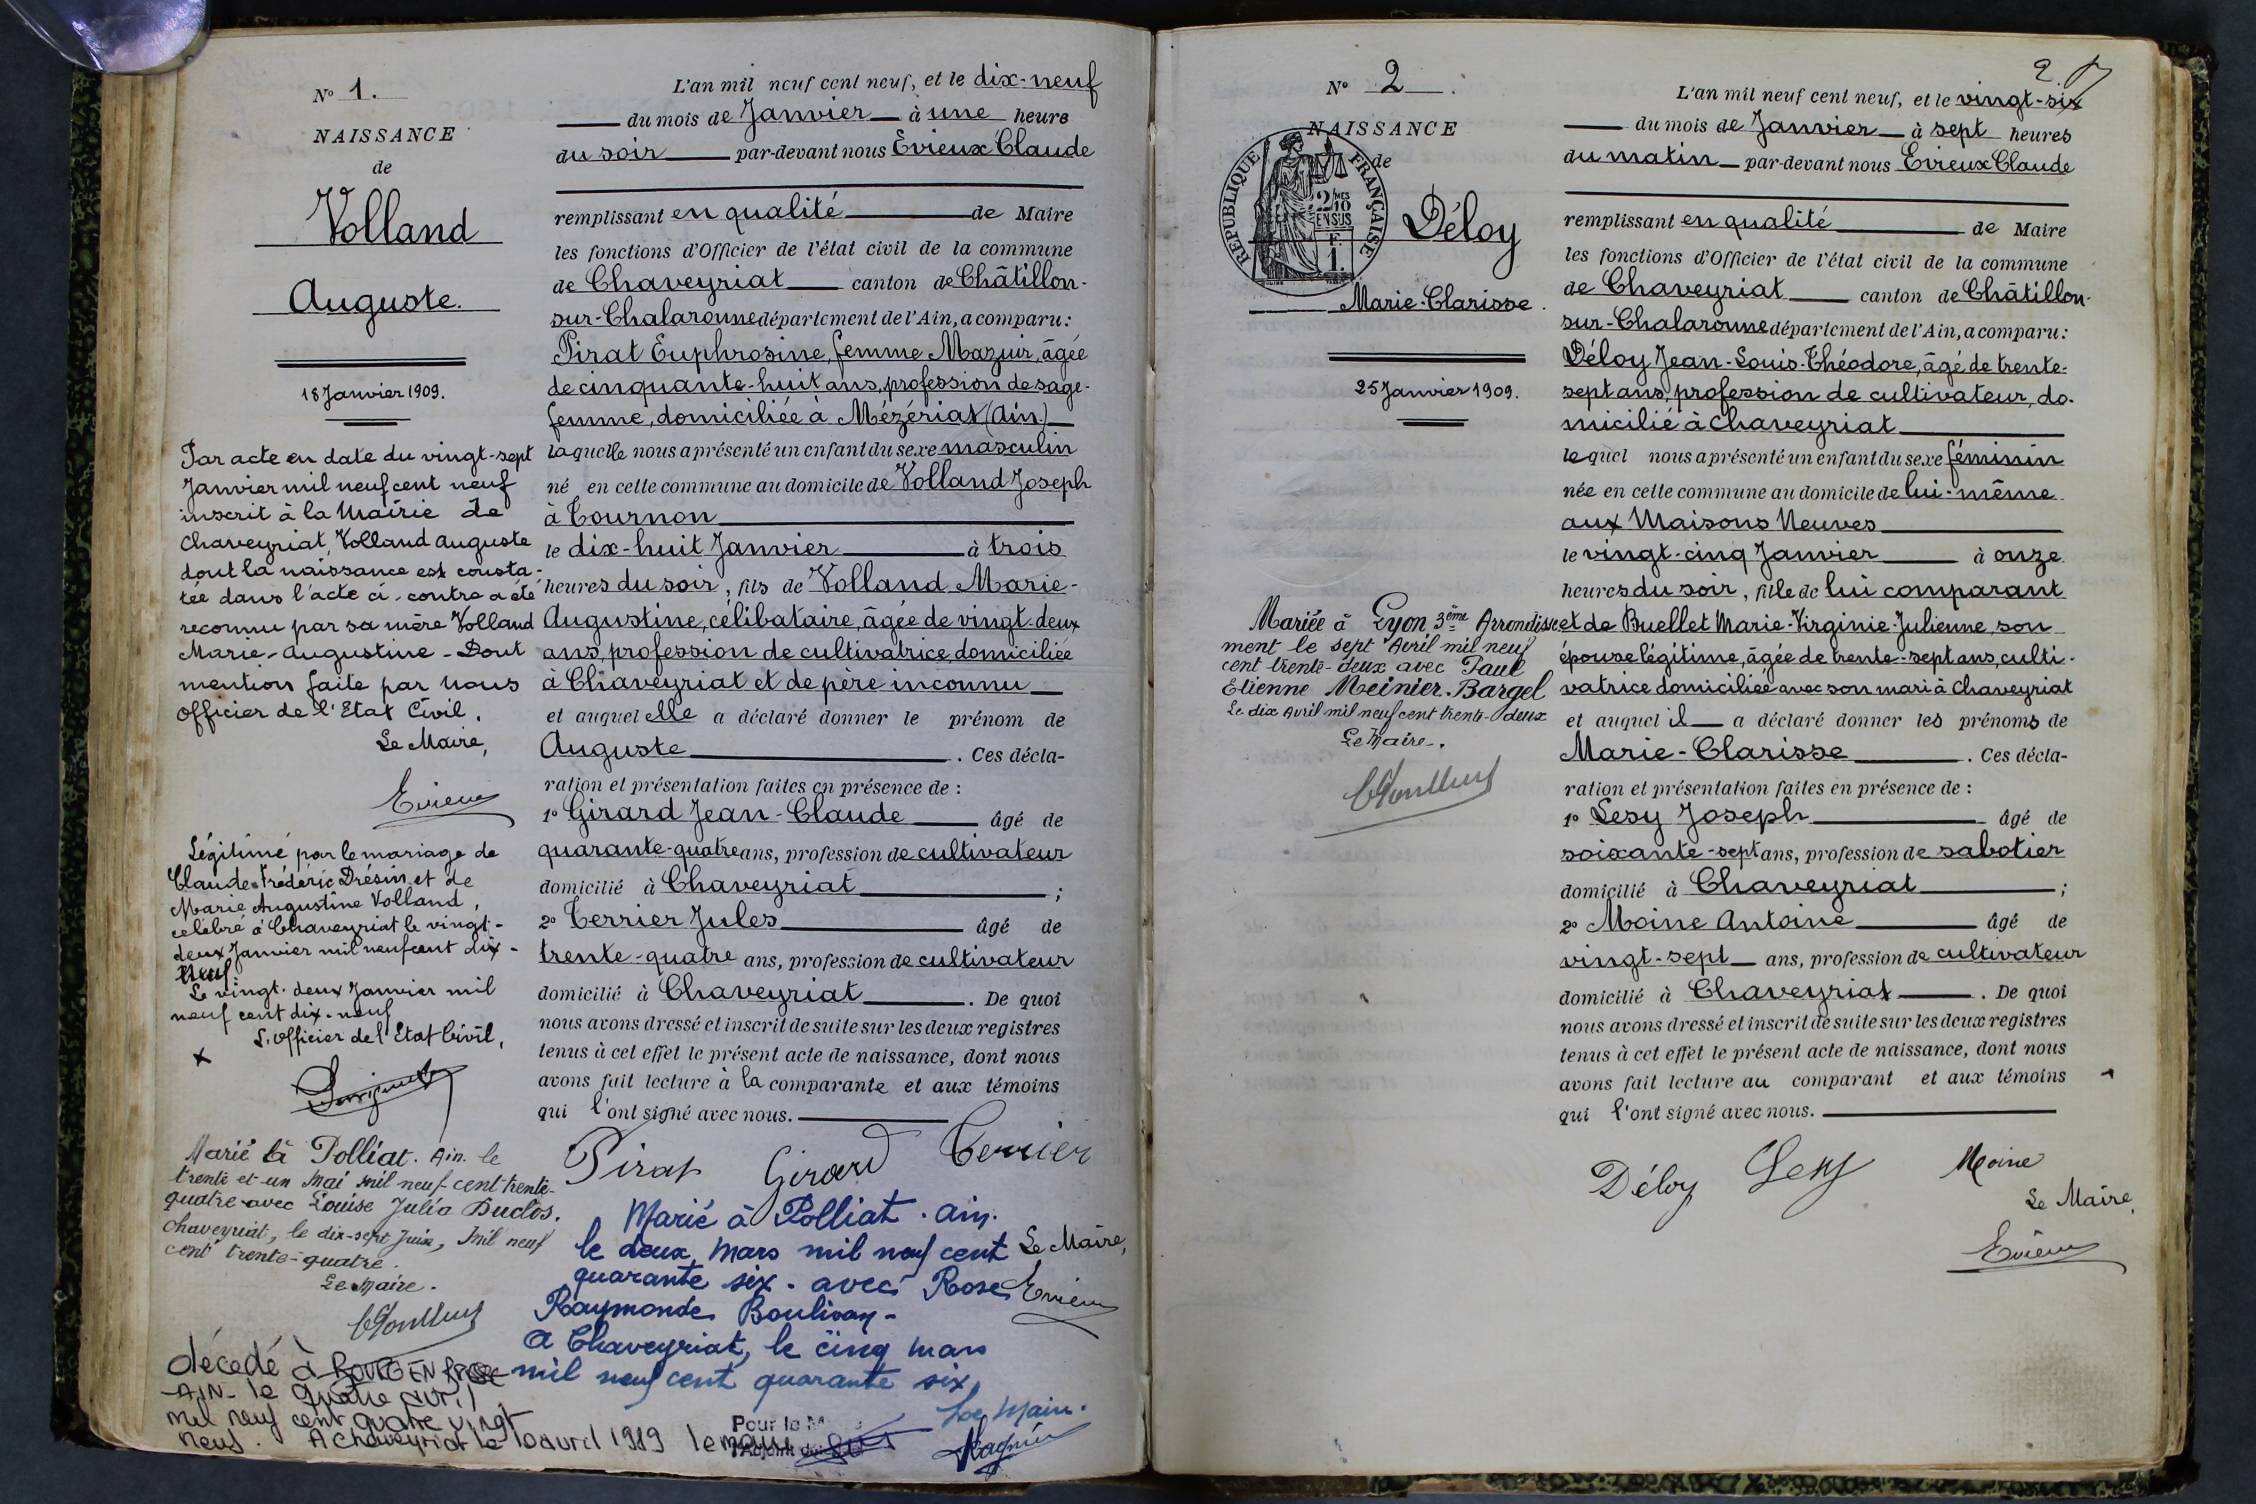 N° 1.
NAISSANCE
de
Volland
Auguste.
18 Janvier 1909.
Par acte en date du vingt-sept
Janvier mil neuf cent neuf
inscrit à la Mairie de
Chaveyriat, Volland Auguste
dont la naissance est consta-
tée dans l'acte ci-contre a été
reconnu par sa mère Volland
Marie-Augustine - Dont
mention faite par nous
officier de l'Etat Civil.
Le Maire,
Evieux
Légitimé par le mariage de
Claude Frédéric Drésin et de
Marie Augustine Volland,
célébré à Chaveyriat le vingt-
deux Janvier mil neuf cent dix-
neuf
Le vingt-deux Janvier mil
neuf cent dix-neuf
L'officier de l'Etat Civil,
Marié à Polliat. Ain. le
trente et un Mai mil neuf cent trente-
quatre avec Louise Julia Buclos.
Chaveyriat, le dix-sept Juin, mil neuf
cent trente-quatre.
Le Maire.
décédé à BOURG EN BRESSE
-AIN- le quatre avril
mil neuf cent quatre vingt
neuf. A Chaveyriat le 10 avril 1989 le maire
L'an mil neuf cent neuf, et le dix-neuf
du mois de Janvier à une heure
du soir par-devant nous Evieux Claude
remplissant en qualité de Maire
les fonctions d'Officier de l'état civil de la commune
de Chaveyriat canton de Châtillon-
sur-Chalaronne département de l'Ain, a comparu:
Pirat Euphrosine, femme Mazuir, âgée
de cinquante-huit ans, profession de sage-
femme, domiciliée à Mézériat (Ain)
laquelle nous a présenté un enfant du sexe masculin
né en cette commune au domicile de Volland Joseph
à Tournon
le dix-huit Janvier à trois
heures du soir, fils de Volland Marie-
Augustine, célibataire, âgée de vingt-deux
ans, profession de cultivatrice, domiciliée
à Chaveyriat et de père inconnu
et auquel elle a déclaré donner le prénom de
Auguste. Ces décla-
ration et présentation faites en présence de :
1° Girard Jean-Claude âgé de
quarante-quatre ans, profession de cultivateur
domicilié à Chaveyriat ;
2° Terrier Jules âgé de
trente-quatre ans, profession de cultivateur
domicilié à Chaveyriat. De quoi
nous avons dressé et inscrit de suite sur les deux registres
tenus à cet effet le présent acte de naissance, dont nous
avons fait lecture à la comparante et aux témoins
qui l'ont signé avec nous.
Pirat Girard Terrier
Le Maire,
Evieux
Marié à Polliat. ain.
le deux mars mil neuf cent
quarante six. avec Rose
Raymonde Boulivan-
A Chaveyriat, le cinq mars
mil neuf cent quarante six
Le Maire.
Pour le M
l'Adjoint
2.
N° 2.
NAISSANCE
de
REPUBLIQUE FRANÇAISE
2/10MES
EN SUS
1F.
Déloy
Marie-Clarisse.
25 Janvier 1909.
Mariée à Lyon 3ème Arrondisse
ment le sept Avril mil neuf
cent trente-deux avec Paul
Etienne Meinier-Bargel
Le dix Avril mil neuf cent trente-deux
Le Maire.
L'an mil neuf cent neuf, et le vingt-six
du mois de Janvier à sept heures
du matin par-devant nous Evieux Claude
remplissant en qualité de Maire
les fonctions d'Officier de l'état civil de la commune
de Chaveyriat canton de Châtillon-
sur-Chalaronne département de l'Ain, a comparu:
Déloy Jean-Louis-Théodore, âgé de trente-
sept ans, profession de cultivateur, do-
micilié à Chaveyriat
lequel nous a présenté un enfant du sexe féminin
née en cette commune au domicile de lui-même
aux Maisons Neuves
le vingt-cinq Janvier à onze
heures du soir, fille de lui comparant
et de Buellet Marie-Virginie-Julienne, son
épouse légitime, âgée de trente-sept ans, culti-
vatrice domiciliée avec son mari à Chaveyriat
et auquel il a déclaré donner les prénoms de
Marie-Clarisse. Ces décla-
ration et présentation faites en présence de :
1° Lesy Joseph âgé de
soixante-sept ans, profession de sabotier
domicilié à Chaveyriat ;
2° Moine Antoine âgé de
vingt-sept ans, profession de cultivateur
domicilié à Chaveyriat. De quoi
nous avons dressé et inscrit de suite sur les deux registres
tenus à cet effet le présent acte de naissance, dont nous
avons fait lecture au comparant et aux témoins
qui l'ont signé avec nous.
Déloy Lesy Moine
Le Maire,
Evieux